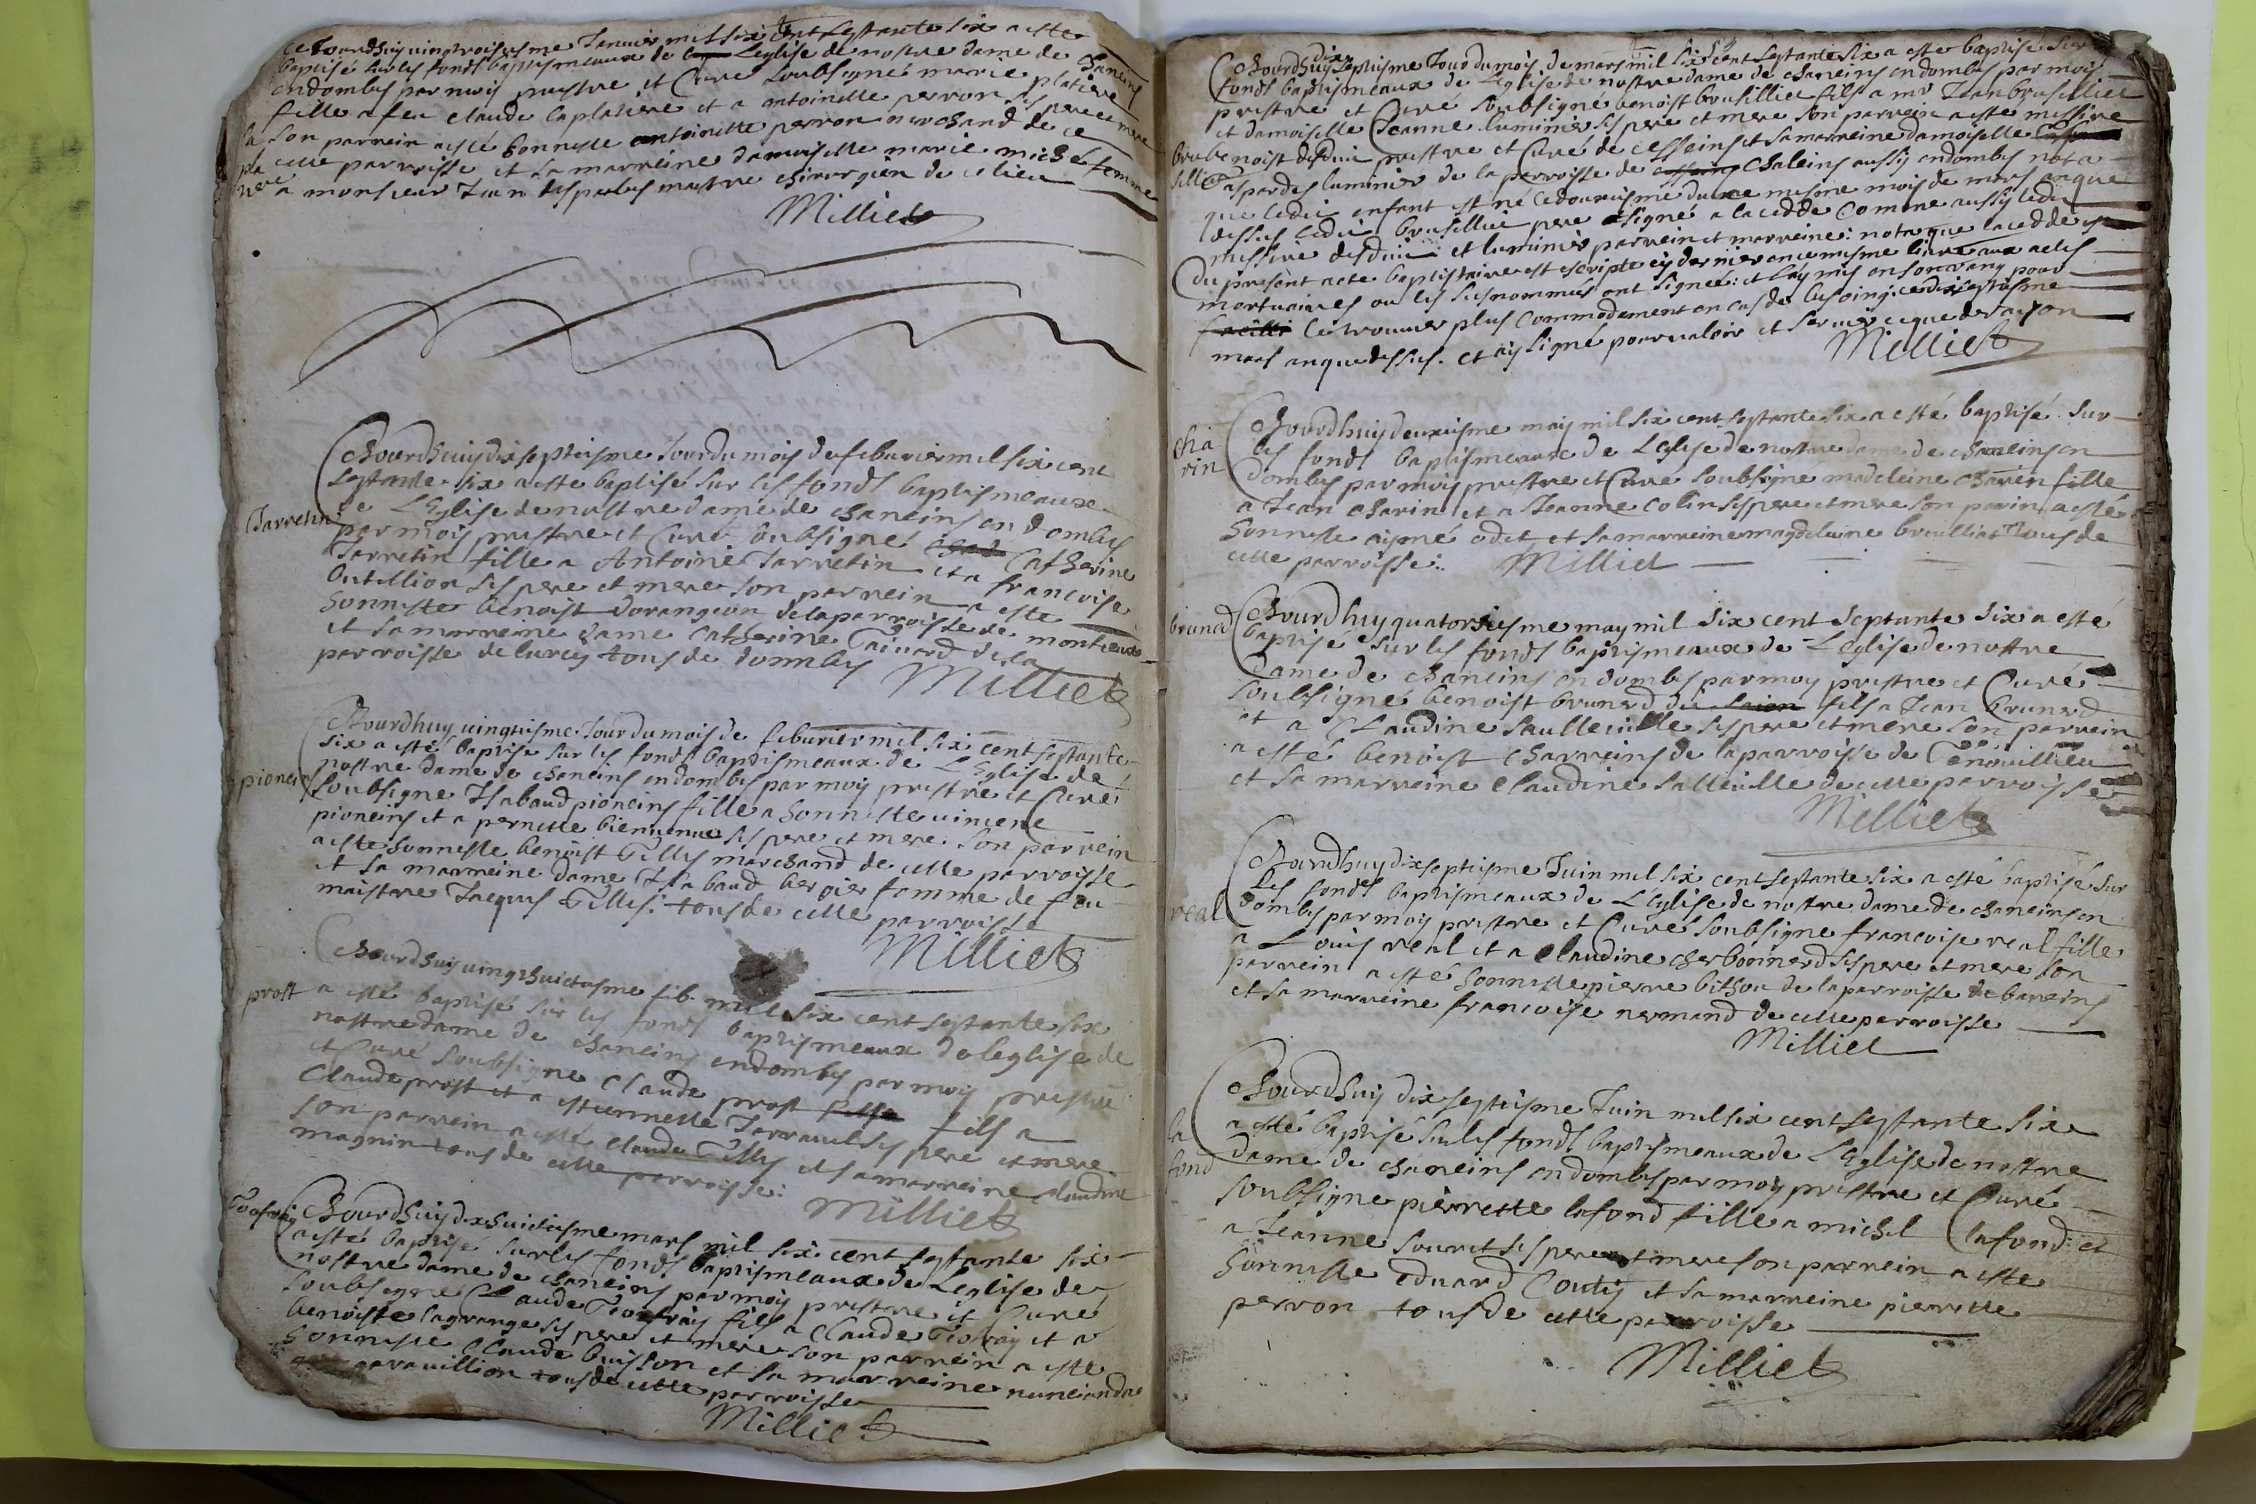 Cejourdhuy vingtroisiesme Januier mil six cent septante six a este
baptisé sur les fonds baptismeaux de Leglise de nostre dame de chaneins
en dombes par moy prestre et Curé soubsigné marie platiere
fille a feu claude laplatiere et a antoinette perron ses pere et mere
la son parrein a esté honneste antoinette perron marchand de ce
pla cette parroisse et sa marreine damoiselle marie miché femme
tiere a monsieur Jean desparles maistre chirurgien de ce lieu
Milliet
Cejourdhuy dix septiesme Jour du mois de feburier mil six cent
septante six a este baptisé sur les fonds baptismeaux
de L'Eglise de nostre dame de chaneins en dombes
Jarretin
par moy prestre et Curé soubsigné Catherine
Jarretin fille a Antoine Jarretin et a francoise
Outillion ses pere et mere son parrein a este
honneste benoist dorangeon de la parroisse de montceaux
et sa marreine dame Catherine Tainard de la
parroisse de lurcy tous de dombes
Milliet
Cejourdhuy vingtiesme Jour du mois de feburier mil six cent septante
six a esté baptisé sur les fonds baptismeaux de L'Eglise de
nostre dame de chaneins en dombes par moy prestre et Curé
pioneins
soubsigné Isabaud pioneins fille a honneste vincent
pioneins et a pernette bienuenue ses pere et mere son parrein
a este honneste benoist Tillis marchand de cette parroisse
et sa marreine dame Isabaud bergier femme de feu
maistre Jacques Tillis: tous de cette parroisse
Milliet
Cejourdhuy vingthuictiesme feb. mil six cent septante six
prost
a esté baptisé sur les fonds baptismeaux de leglise de
nostre dame de chaneins en dombes par moy prestre
et Curé soubsigné Claude prost fils a
Claude prost et a estiennette Jarrault ses pere et mere
son parrein a esté claude Tillis et sa marreine claudine
magnin tous de cette parroisse:
Milliet
Cejourdhuy dixhuictiesme mars mil six cent septante six
a esté baptisé sur les fonds baptismeaux de L'eglise de
nostre dame de chaneins par moy prestre et Curé
soubsigné Claude Jeofray fils a Claude Jeofray et a
benoiste lagrange ses pere et mere son parrein a este
honneste Claude buisson et sa marreine
parauillion tous de cette parroisse
Milliet
Cejourdhuy dix septiesme Jour du mois de mars mil six cent septante six a este baptisé sur
fonds baptismeaux de L'eglise de nostre dame de chaneins en dombes par moy
prestre et Curé soubsigné benoist brusilliet fils a mr Jean brusilliet
et damoiselle Jeanne luminier ses pere et mere son parrein a este messire
benoist desduic prestre et Curé de cesseins et sa marreine damoiselle
gaspardes luminier de la parroisse de chaleins aussy en dombes nota
que ledit enfant est né le douziesme du mesme mois de mars an que
dessus ledit brusilliet pere a signé a la cedde comme aussy ledit
messire desduic et luminier parrein et marreine: nota que la cedde
du present acte baptistaire est escripte cy dernier en ce mesme liure aux actes
mortuaires ou les susnommés ont signés: et lay mis en son rang pour
le trouuer plus commodement en cas de besoing. ce dixseptiesme
mars an que dessus. et ay signé pour valoir et seruir ce que de raison
Milliet
Cha
rin
Cejourdhuy deuxiesme may mil six cent septante six a esté baptisé sur
les fonds baptismeaux de L'eglise de nostre dame de chaneins en
dombes par moy prestre et Curé soubsigné madeleine charin fille
a Jean charin et a Jeanne colin ses pere et mere son parin a esté
honneste aymé odet et sa marreine magdeleine brulliat tous de
cette parroisse:
Milliet
brunerd
Cejourdhuy quatorsiesme may mil six cent septante six a esté
baptisé sur les fonds baptismeaux de L'eglise de nostre
dame de chaneins en dombes par moy prestre et Curé
soubsigné benoist brunerd fils a Jean brunerd
et a Claudine saulleuille ses pere et mere son parrein
a esté benoist charreins de la parroisse de Genouillieu
et sa marreine claudine salleuille de cette parroisse
Milliet
Cejourdhuy dix septiesme Juin mil six cent septante six a esté baptisé sur
les fonds baptismeaux de L'église de nostre dame de chaneins en
real
dombes par moy prestre et Curé soubsigné francoise real fille
a Louis real et a claudine cherbonnerd ses pere et mere son
parrein a esté honneste pierre bithou de la parroisse de baneins
et sa marreine francoise nermand de cette parroisse
Milliet
Cejourdhuy dix septiesme Juin mil six cent septante six
la
fond
a esté baptisé sur les fonds baptismeaux de L'Eglise de nostre
dame de chaneins en dombes par moy prestre et Curé
soubsigné pierrette lafond fille a michel lafond et
a Jeanne souret ses pere et mere son parrein a este
honneste eduard Couty et sa marreine pierrette
perron tous de cette parroisse
Milliet